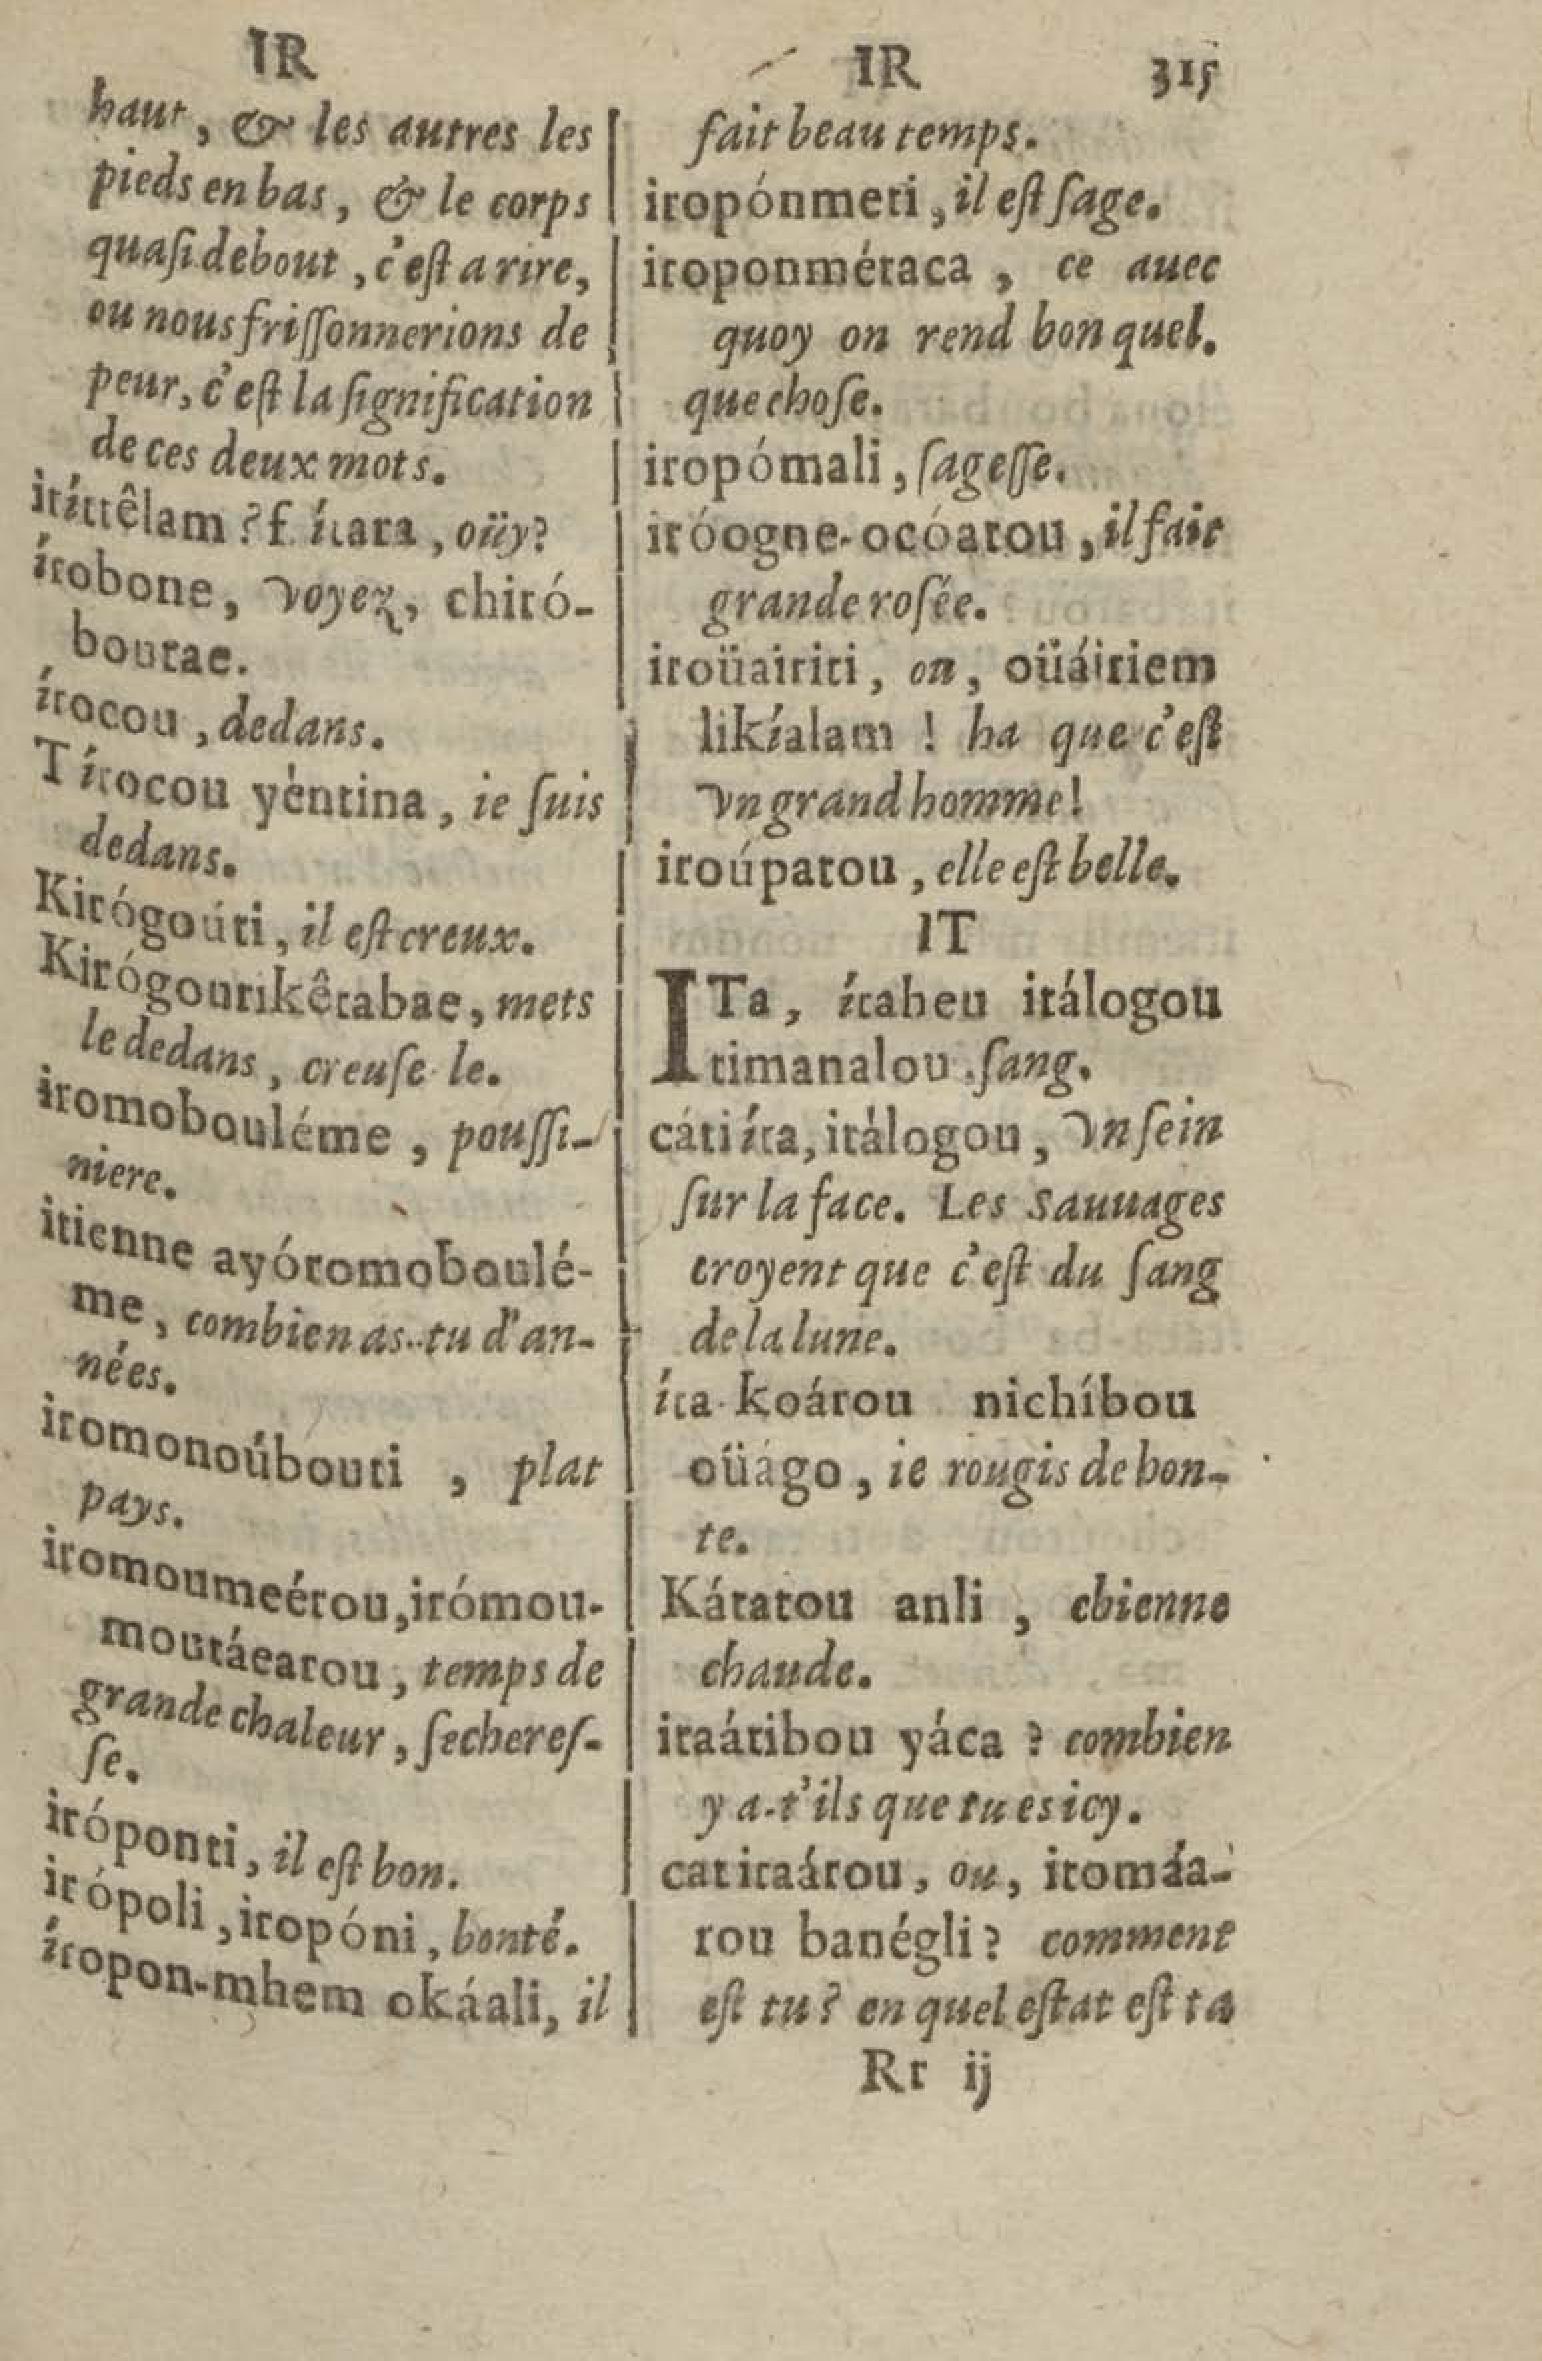 IR
haut, & les autres les
pieds en bas, & le corps
quaſi debout, c'eſt a rire,
ou nous friſſonnerions de
peur, c'eſt la ſignification
de ces deux mots.
itíttêlam ? f. ítara, oüy?
írobone, voyez, chiró-
boutae.
írocou, dedans.
Tírocou yéntina, ie ſuis
dedans.
Kirógoúti, il eſt creux.
Kirógourikêtabae, mets
le dedans, creuſe-le.
iromobouléme, pouſſi-
niere.
itienne ayóromoboulé-
me, combien as-tu d'an-
nées.
iromonoúbouti, plat
pays.
iromoumeérou, irómou-
moutáearou, temps de
grande chaleur, ſechereſ-
ſe.
iróponti, il eſt bon.
irópoli, iropóni, bonté.
íropon-mhem okáali, il
IR 315
fait beau temps.
iropónmeti, il eſt ſage.
iroponméraca, ce auec
quoy on rend bon quel-
que choſe.
iropómali, ſageſſe.
iróogne-ocóatou, il fait
grande roſée.
iroüairiti, ou, oüáiriem
likíalam ! ha que c'eſt
vn grand homme!
iroúpatou, elle eſt belle.
IT
ITa, ítaheu itálogou
timanalou ſang.
cáti íta, itálogou, vn ſein
ſur la face. Les Sauuages
croyent que c'eſt du ſang
de la lune.
íta koárou nichíbou
oüágo, ie rougis de hon-
te.
Káratou anli, chienne
chaude.
itaátibou yáca ? combien
y a-t'ils que tu és icy.
cat itaárou, ou, itomáa-
rou banégli? comment
eſt tu? en quel eſtat eſt ta
Rr ij